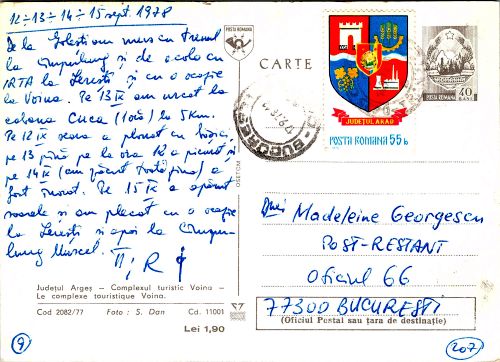 12÷13÷14÷15 sept. 1978
De la Golești am mers cu trenul
la Câmpulung și de acolo cu
IRTA la Lerești și cu o ocazie
la Voina. Pe 13 IX am urcat la
cabana Cuca (11oră) la 5km.
Pe 12 IX seara a plouat cu
pe 13 până pe la ora 12 a picurat și
pe 14 IX (am făcut) a
fost înnorat. Pe 15 IX a apărut
soarele și am plecat cu o ocazie
la Lerești și apoi la Câmpu-
lung Muscel.
Județul Argeș – Complexul turistic Voina –
Le complexe touristique Voina.
Cod 2082/77 Foto : S. Dan Cd. 11001
Lei 1,90
9
POSTA ROMANA
CARTE
JUDEȚUL ARAD
POSTA ROMANA 55 b
POSTA ROMANA 40
BUCUREȘTI
Dnei Madeleine Georgescu
POST-RESTANT
Oficiul 66
77300 BUCUREȘTI
(Oficiul Postal sau țara de destinație)
207